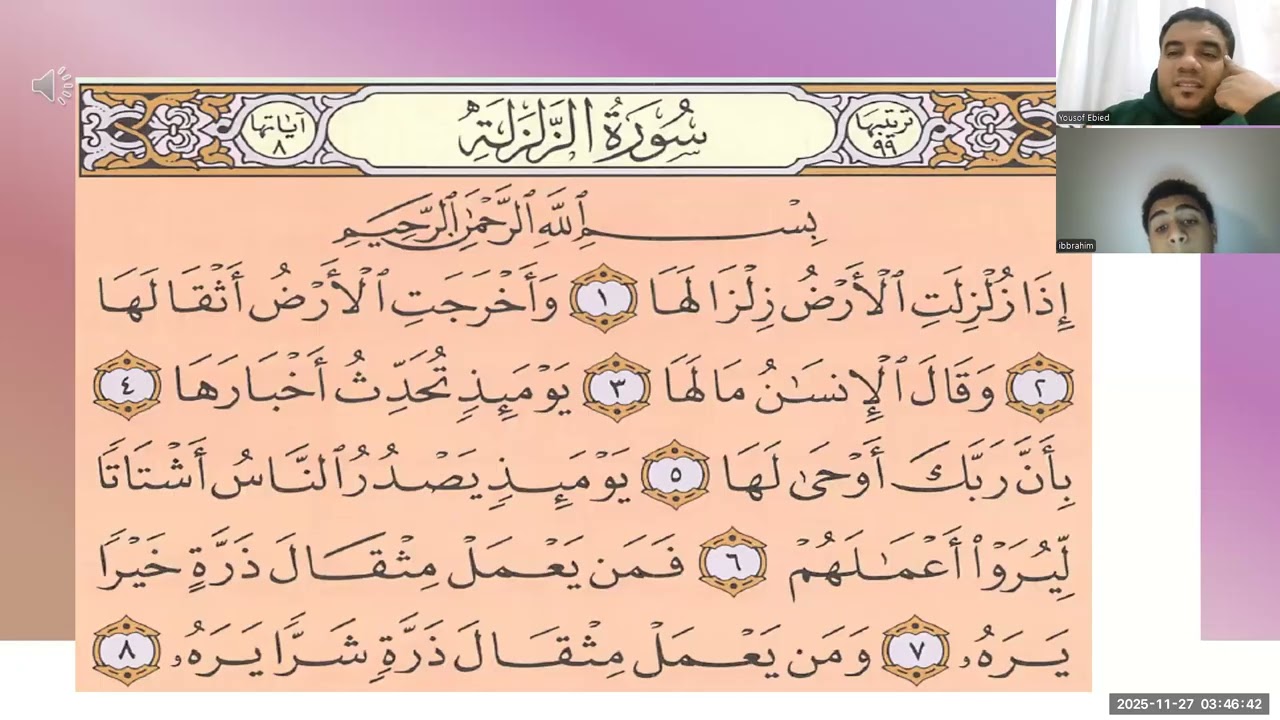 سُورَةُ الزَّلْزَلَةِ
ترتيبها ٩٩
آياتها ٨
بِسْمِ ٱللَّهِ ٱلرَّحْمَٰنِ ٱلرَّحِيمِ
إِذَا زُلْزِلَتِ ٱلْأَرْضُ زِلْزَالَهَا ١ وَأَخْرَجَتِ ٱلْأَرْضُ أَثْقَالَهَا
٢ وَقَالَ ٱلْإِنسَٰنُ مَا لَهَا ٣ يَوْمَئِذٍ تُحَدِّثُ أَخْبَارَهَا ٤
بِأَنَّ رَبَّكَ أَوْحَىٰ لَهَا ٥ يَوْمَئِذٍ يَصْدُرُ ٱلنَّاسُ أَشْتَاتًا
لِّيُرَوْا۟ أَعْمَٰلَهُمْ ٦ فَمَن يَعْمَلْ مِثْقَالَ ذَرَّةٍ خَيْرًا
يَرَهُۥ ٧ وَمَن يَعْمَلْ مِثْقَالَ ذَرَّةٍ شَرًّا يَرَهُۥ ٨
Yousof Ebied
ibbrahim
2025-11-27 03:46:42